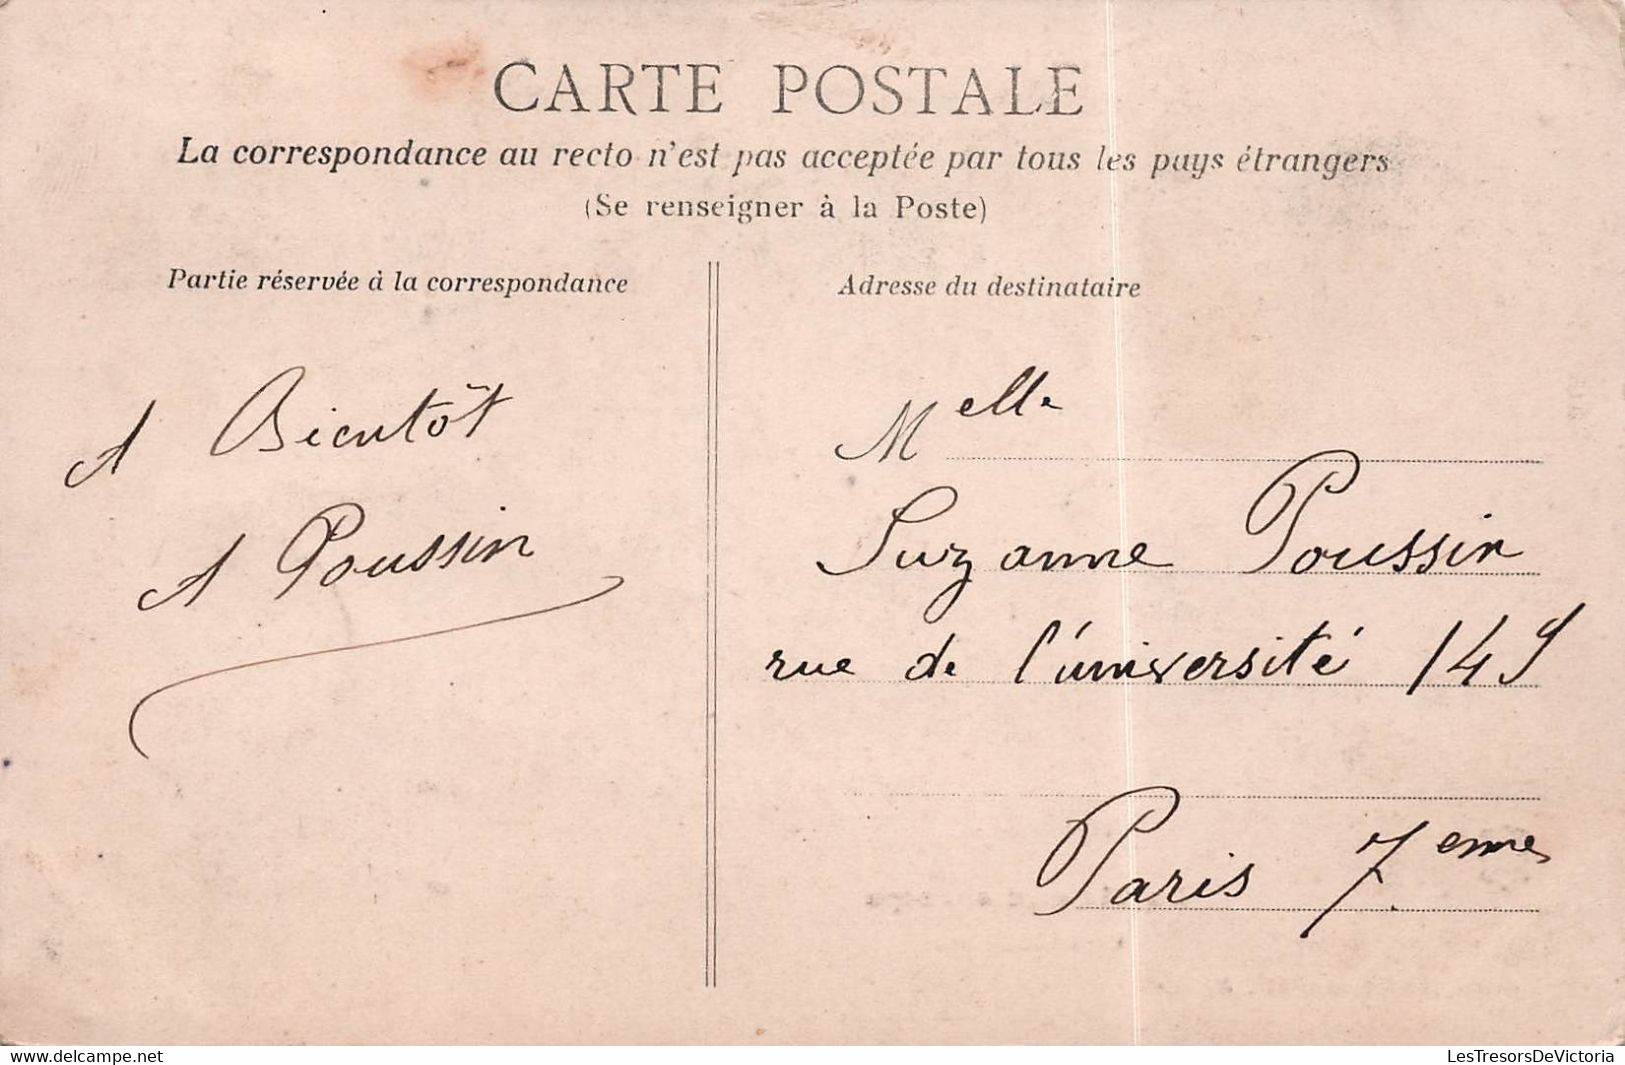 CARTE POSTALE
La correspondance au recto n'est pas acceptée par tous les pays étrangers
(Se renseigner à la Poste)
Partie réservée à la correspondance
A Bientôt
A Poussin
Adresse du destinataire
Melle
Suzanne Poussin
rue de l'université 149
Paris 7eme
www.delcampe.net
LesTresorsDeVictoria